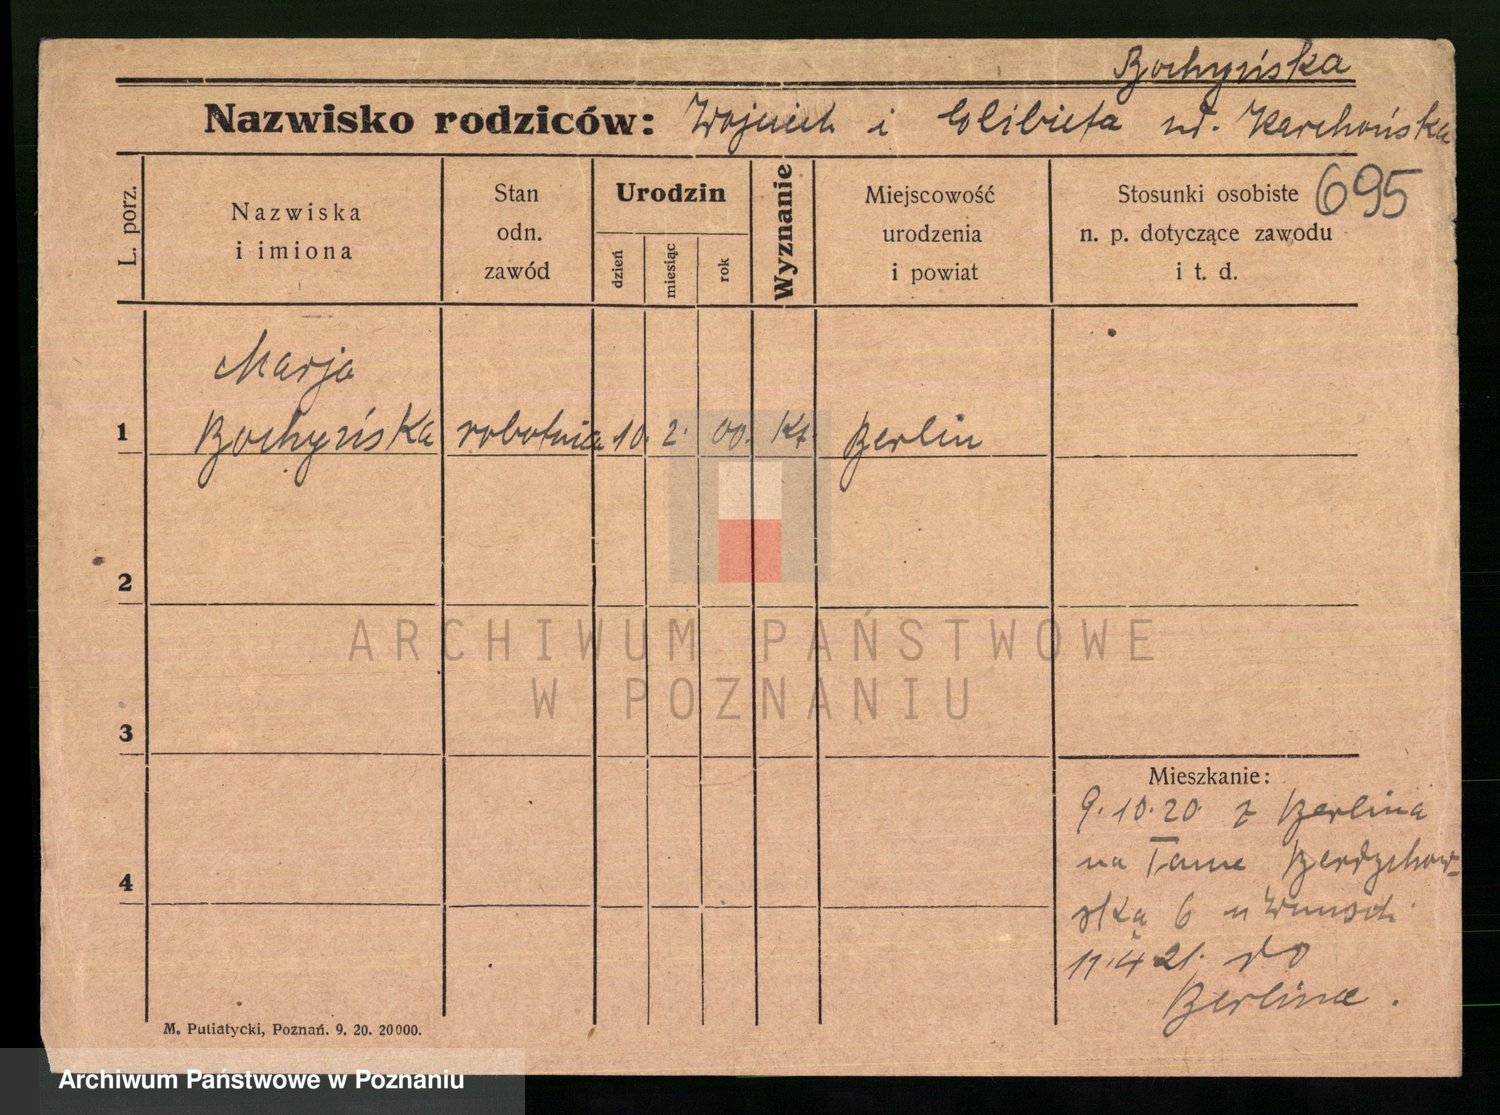 Bochyńska
Nazwisko rodziców: Wojciech i Elżbieta ur. Karchońska
L. porz.
Nazwiska
i imiona
Stan
odn.
zawód
Urodzin
dzień
miesiąc
rok
Wyznanie
Miejscowość
urodzenia
i powiat
Stosunki osobiste
n. p. dotyczące zawodu
i t. d.
695
Marja
1 Bochyńska robotnica 10. 2. 00. Kt. Berlin
2
3
4
Mieszkanie:
9.10.20 z Berlina
na Tame Berdychow-
ską 6 u
11.4.21. do
Berlina.
M. Putiatycki, Poznań. 9. 20. 20000.
ARCHIWUM PAŃSTWOWE
W POZNANIU
Archiwum Państwowe w Poznaniu